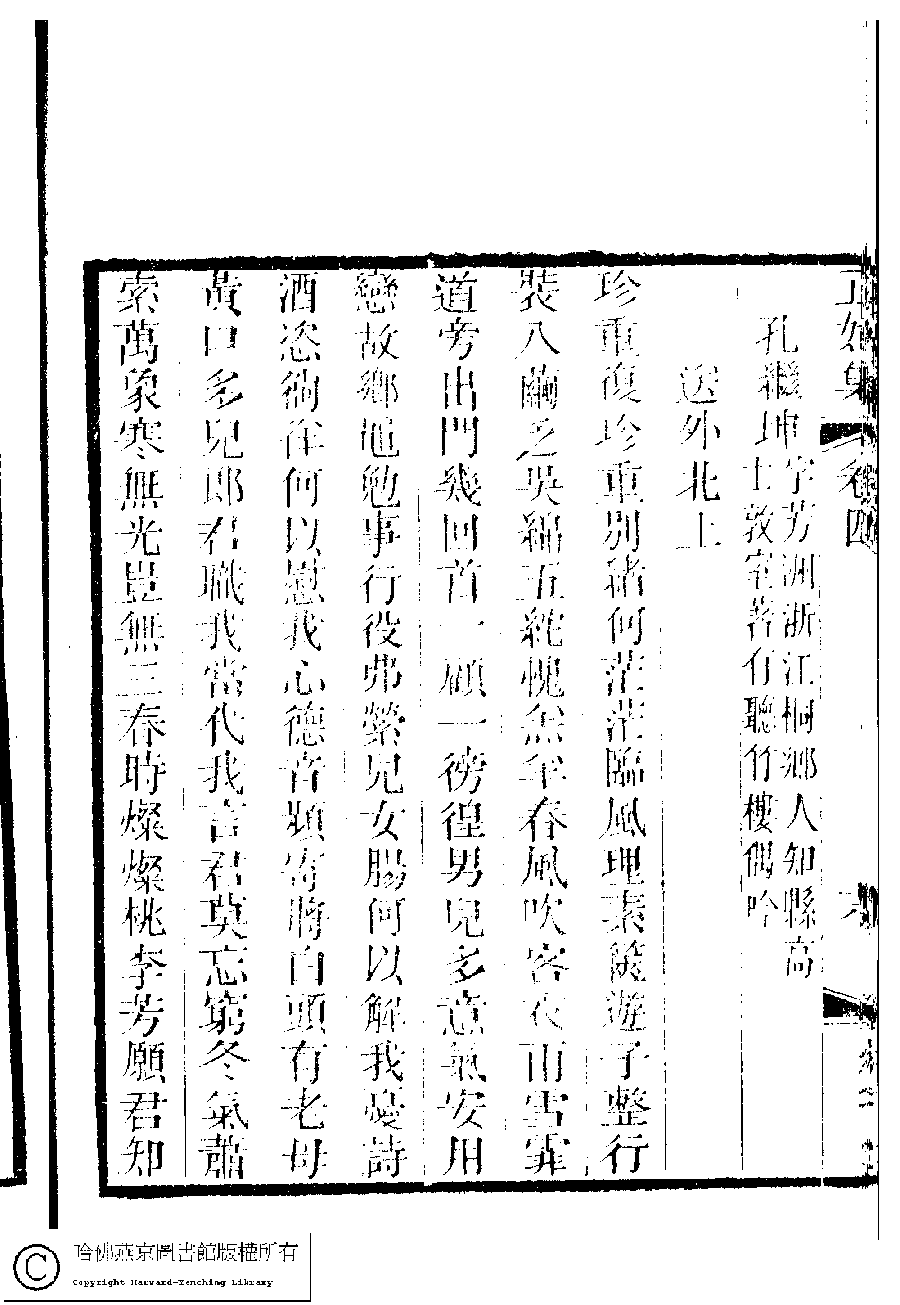 正始集 卷四
孔繼坤 字芳洲浙江桐鄉人知縣高
士敦室著有聽竹樓偶吟
送外北上
珍重復珍重別緒何茫茫臨風理素篋遊子整行
裝八繭乏吳綿五紽愧羔羊春風吹客衣雨雪霏
道旁出門幾回首一顧一徬徨男兒多意氣安用
戀故鄉黽勉事行役弗縈兒女腸何以解我憂詩
酒恣徜徉何以慰我心德音頻寄將白頭有老母
黃口多兒郎君職我當代我言君莫忘窮冬氣蕭
索萬象寒無光豈無三春時燦燦桃李芳願君知
© 哈佛燕京圖書館版權所有
Copyright Harvard-Yenching Library